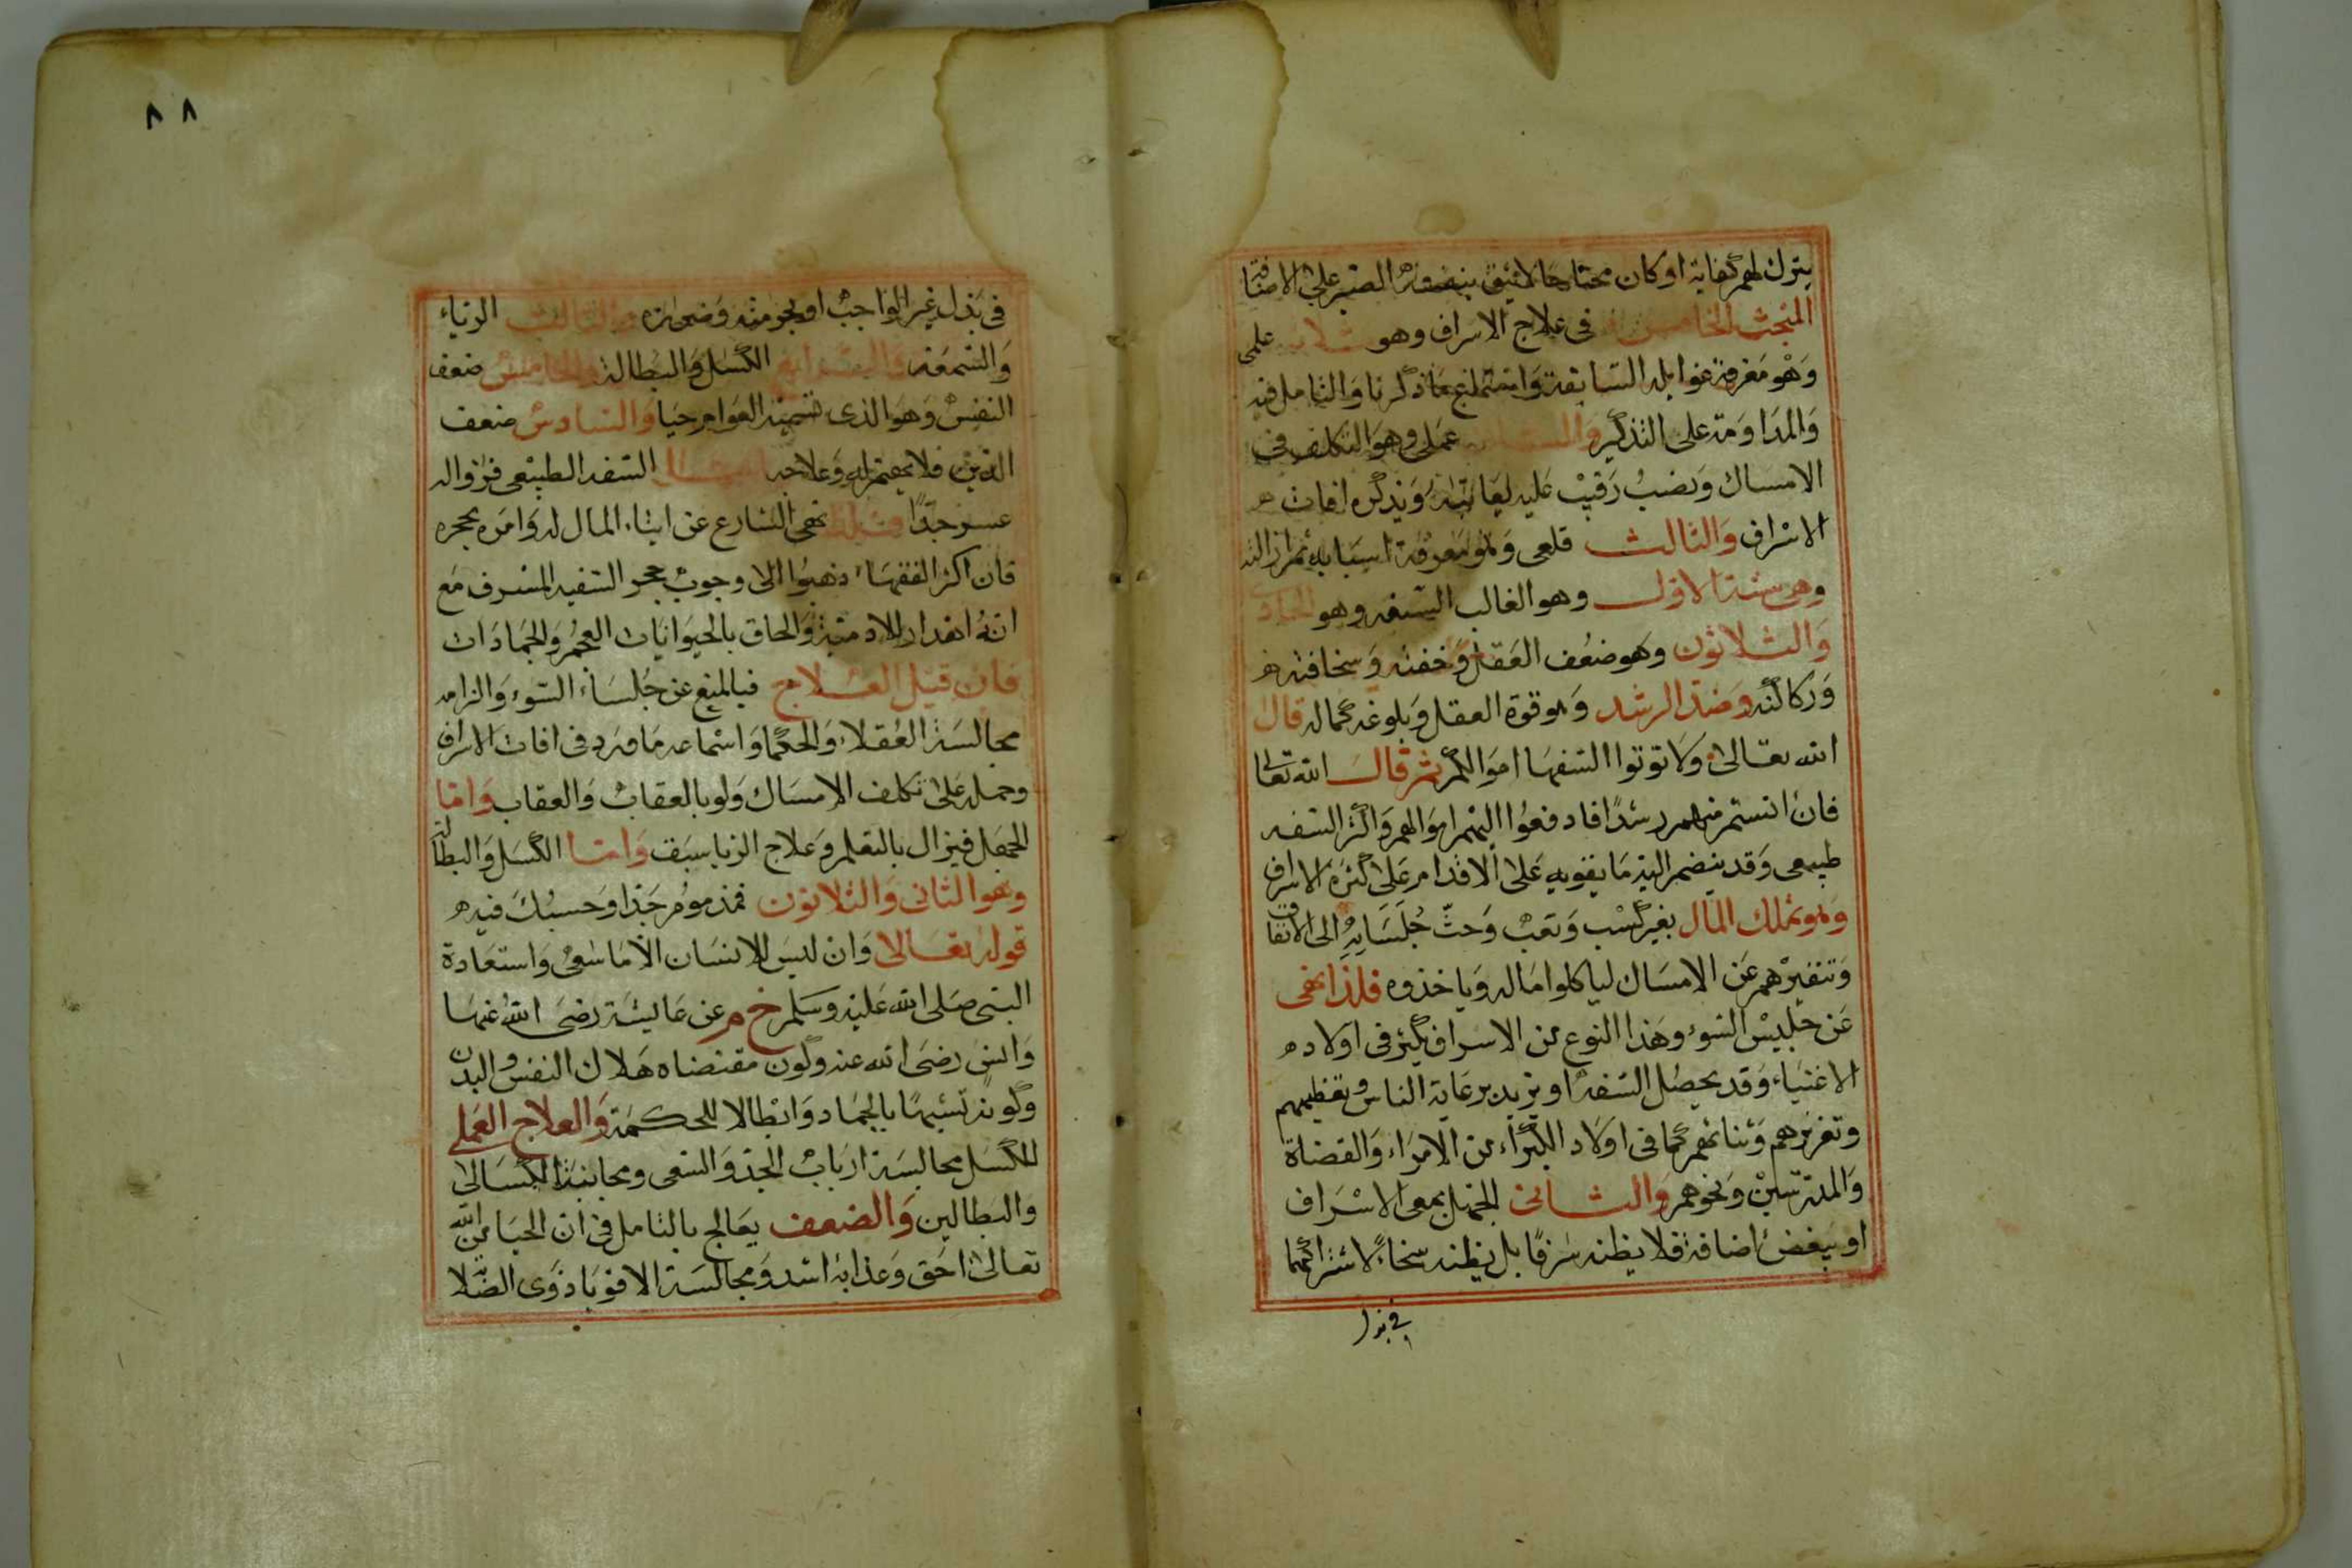 يترك لهم كفاية او كان محتاجا لا يثق بنفسه الصبر على الاضاقة
المبحث الخامس في علاج الاسراف وهو ثلاثة علمي
وهو معرفة غوائله السابقة واستماع ما ذكرنا والتامل فيه
والمداومة على التذكير والثاني عملي وهو التكلف في
الامساك ونصب رقيب عليه ليعاتبه ويذكره افات
الاسراف والثالث قلعي وهو معرفة اسبابه ثم ازالته
وهي ستة الاول وهو الغالب السفه وهو الحادي
والثلاثون وهو ضعف العقل وخفته وسخافته
وركاكته وضد الرشد وهو قوة العقل وبلوغه كماله قال
الله تعالى ولا توتوا السفها اموالكم ثم قال الله تعالى
فان انستم منهم رشدا فادفعوا اليهم اموالهم واكثر السفه
طبيعي وقد ينضم اليه ما يقويه على الاقدام على كثرة الاسراف
وهو تملك المال بغير كسب وتعب وحث جلسايه الى الانفاق
وتنفيرهم عن الامساك لياكلوا ماله وياخذوه فلذا نهى
عن جليس السوء وهذا النوع من الاسراف يكثر في اولاد
الاغنياء وقد يحصل السفه او يزيد برعاية الناس وتعظيمهم
وتعزيزهم وثنائهم كما في اولاد الكبراء من الامراء والقضاة
والمدرسين ونحوهم والثاني الجهل بمعى الاسراف
او ببعض اضافه فلا يظنه سرفا بل يظنه سخاء لاشتراكهما
في بذل
٨٨
في بذل غير الواجب او بحرمته وضرره والثالث الرياء
والسمعة والرابع الكسل والبطالة والخامس ضعف
النفس وهو الذي تسميه العوام حيا والسادس ضعف
الدين فلا يهتم له وعلاجه السفه الطبيعي فزواله
عسر جدا فلذا نهى الشارع عن ايتاء المال له وامر بحجره
فان اكثر الفقهاء ذهبوا الى وجوب حجر السفيه المسرف مع
انه اهدار للادمية والحاق بالحيوانات العجم والجمادات
فان قيل العلاج فبالمنع عن جلساء السوء والزامه
مجالسة العقلاء والحكما واسماعه ما ورد في افات الاسراف
وحمله على تكلف الامساك ولو بالعقاب والعقاب واما
الجهل فيزال بالتعلم وعلاج الريا سبق واما الكسل والبطالة
وهو الثاني والثلاثون فمذموم جدا وحسبك فيه
قوله تعالى وان ليس للانسان الا ما سعى واستعاذة
النبي صلى الله عليه وسلم خ م عن عايشة رضي الله عنها
وانس رضي الله عنه وكون مقتضاه هلاك النفس والبدن
وكونه تشبيها بالجماد وابطالا للحكمة والعلاج العملي
للكسل مجالسة ارباب الجد والسعي ومجانبة الكسالى
والبطالين والضعف يعالج بالتامل في ان الحيا من الله
تعالى احق وعذابه اشد ومجالسة الاقويا ذوي الصلا